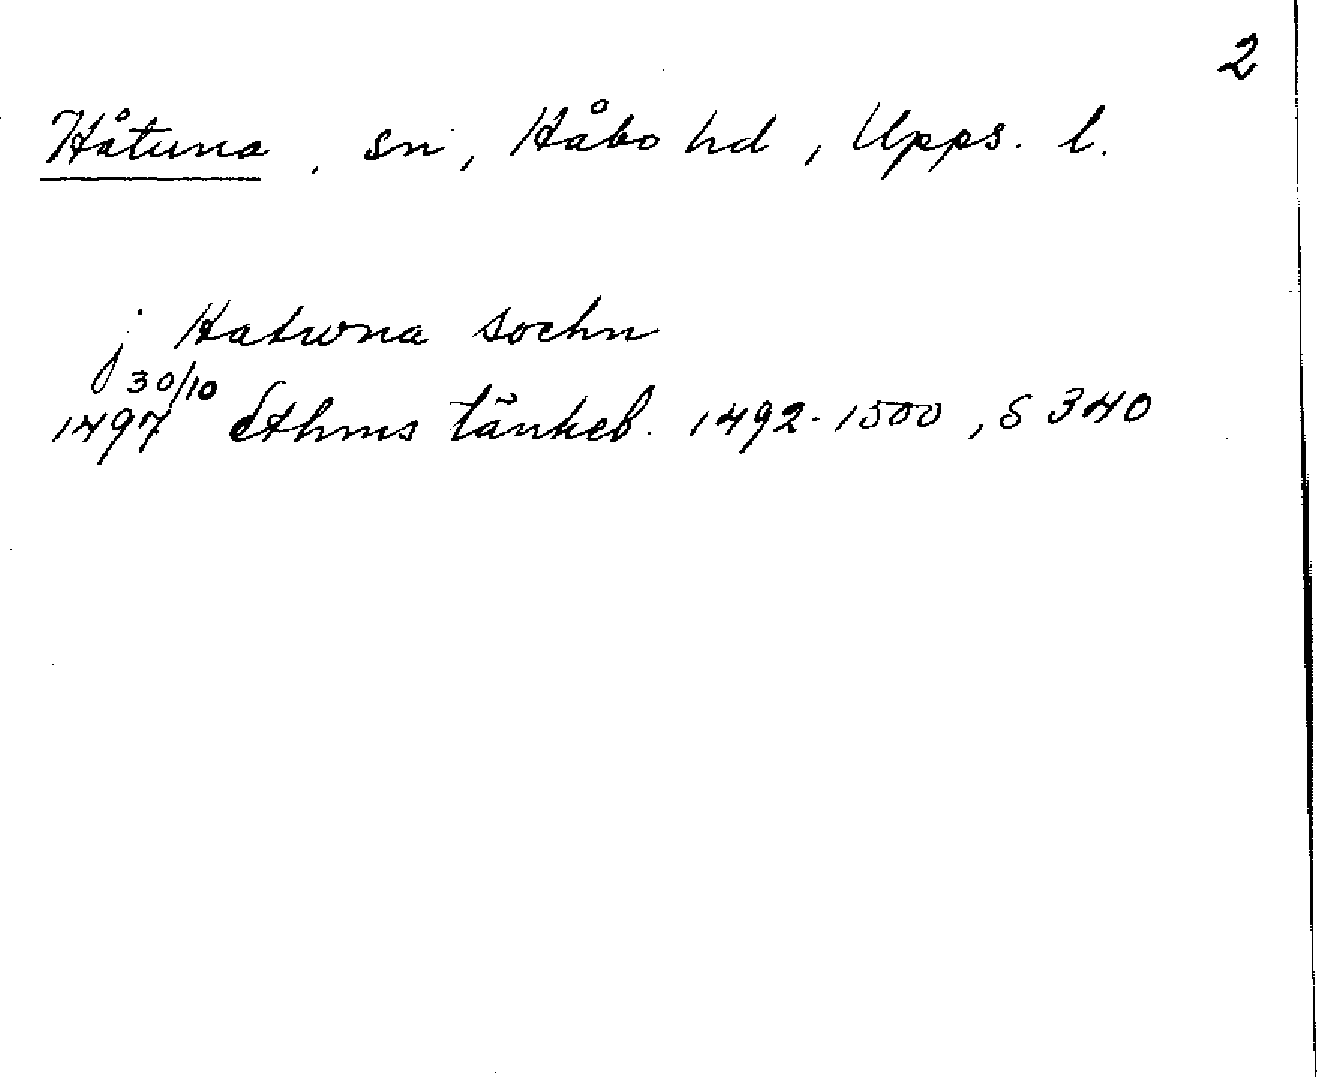 2
Håtuna, sn, Håbo hd, Upps. l.
j Hatwna sochn
1497 30/10 Sthms tänkeb. 1492-1500, S 340